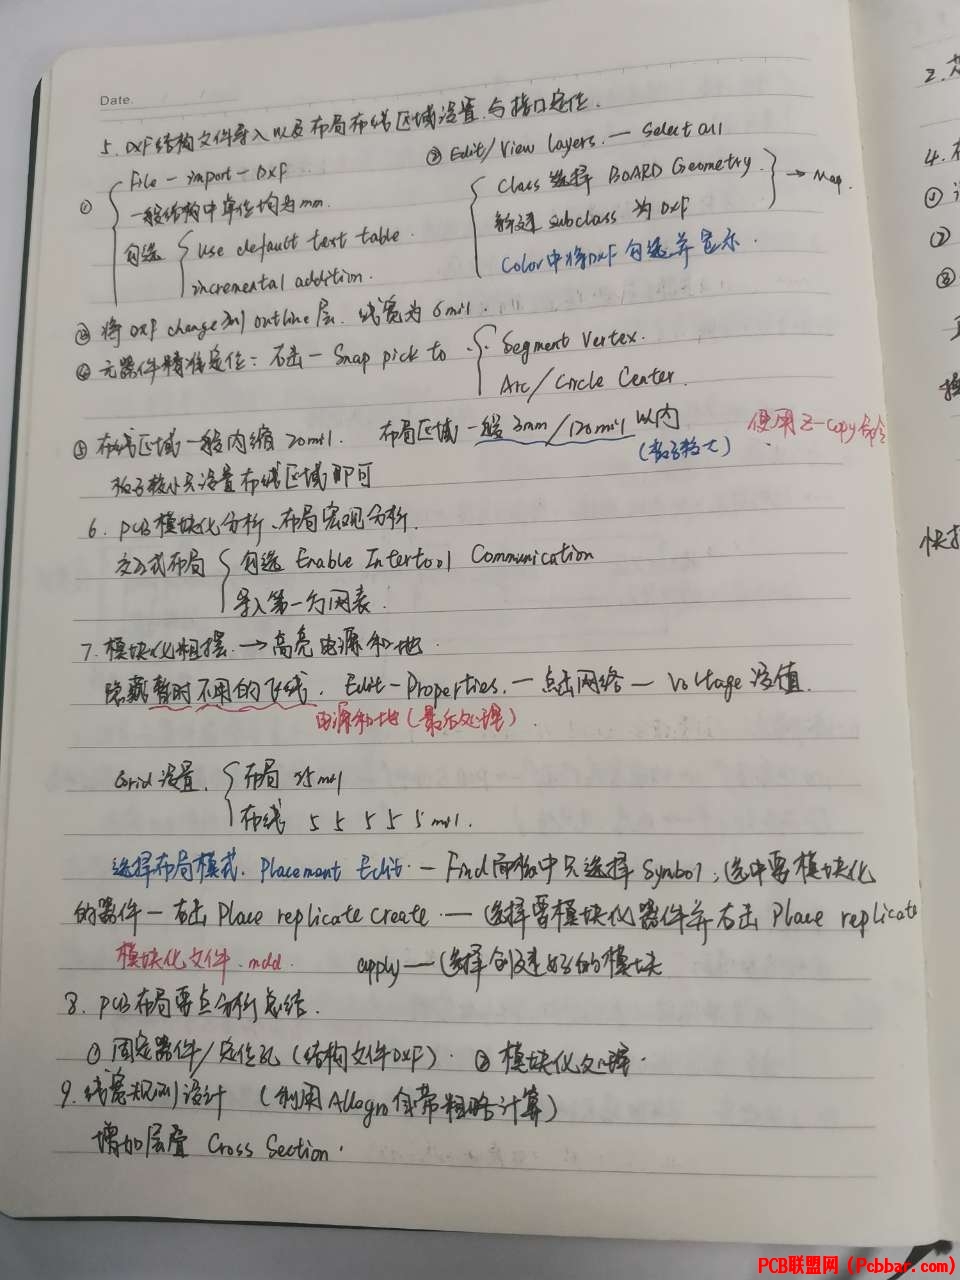 Date.
5. DXF结构文件导入以及布局布线区域设置.与接口定位.
① File - import - DXF
一般结构中单位均为mm.
勾选 use default text table.
incremental addition.
② Edit/View layers. — Select all
Class 选择 BOARD Geometry. → Map.
新建 subclass 为 DXF
Color中将DXF 勾选并显示.
③ 将DXF change到outline层. 线宽为 6mil.
④ 元器件精准定位: 右击 — Snap pick to Segment Vertex.
Arc/Circle Center.
⑤ 布线区域一般内缩 20mil. 布局区域一般 3mm/120mil 以内 使用Z-Copy命令
(板子较大)
板子较小只设置布线区域即可
6. PCB模块化分析、布局宏观分析.
交互式布局 勾选 Enable Intertool Communication
导入第一方网表.
7. 模块化粗摆. → 高亮电源和地.
隐藏暂时不用的飞线. Edit-Properties. — 点击网络 — Voltage 设值.
电源和地(最后处理).
Grid设置. 布局 25mil
布线 5 5 5 5 5mil.
选择布局模式. Placement Edit. — Find面板中只选择 Symbol, 选中要模块化
的器件 — 右击 Place replicate create. — 选择要模块化器件并右击 Place replicate
模块化文件.mdd. apply — 选择创建好的模块
8. PCB布局要点分析总结.
① 固定器件/定位孔 (结构文件DXF). ② 模块化处理.
9. 线宽规则设计 (利用Allegro自带粗略计算)
增加层叠 Cross Section.
2.
4.
①
②
③
PCB联盟网 (Pcbbar.com)